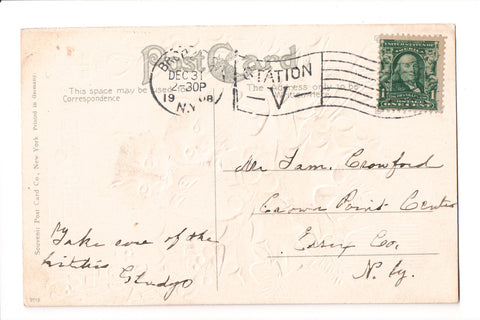 Post Card
This space may be used for
Correspondence
The Address only to be
DEC 31
2-30P
19 08
N.Y.
STATION
V
UNITED STATES OF AMERICA
ONE CENT
Mr Sam. Crawford
Crown Point Center
Essex Co.
N. Y.
Take care of the
kitties
Souvenir Post Card Co., New York Printed in Germany.